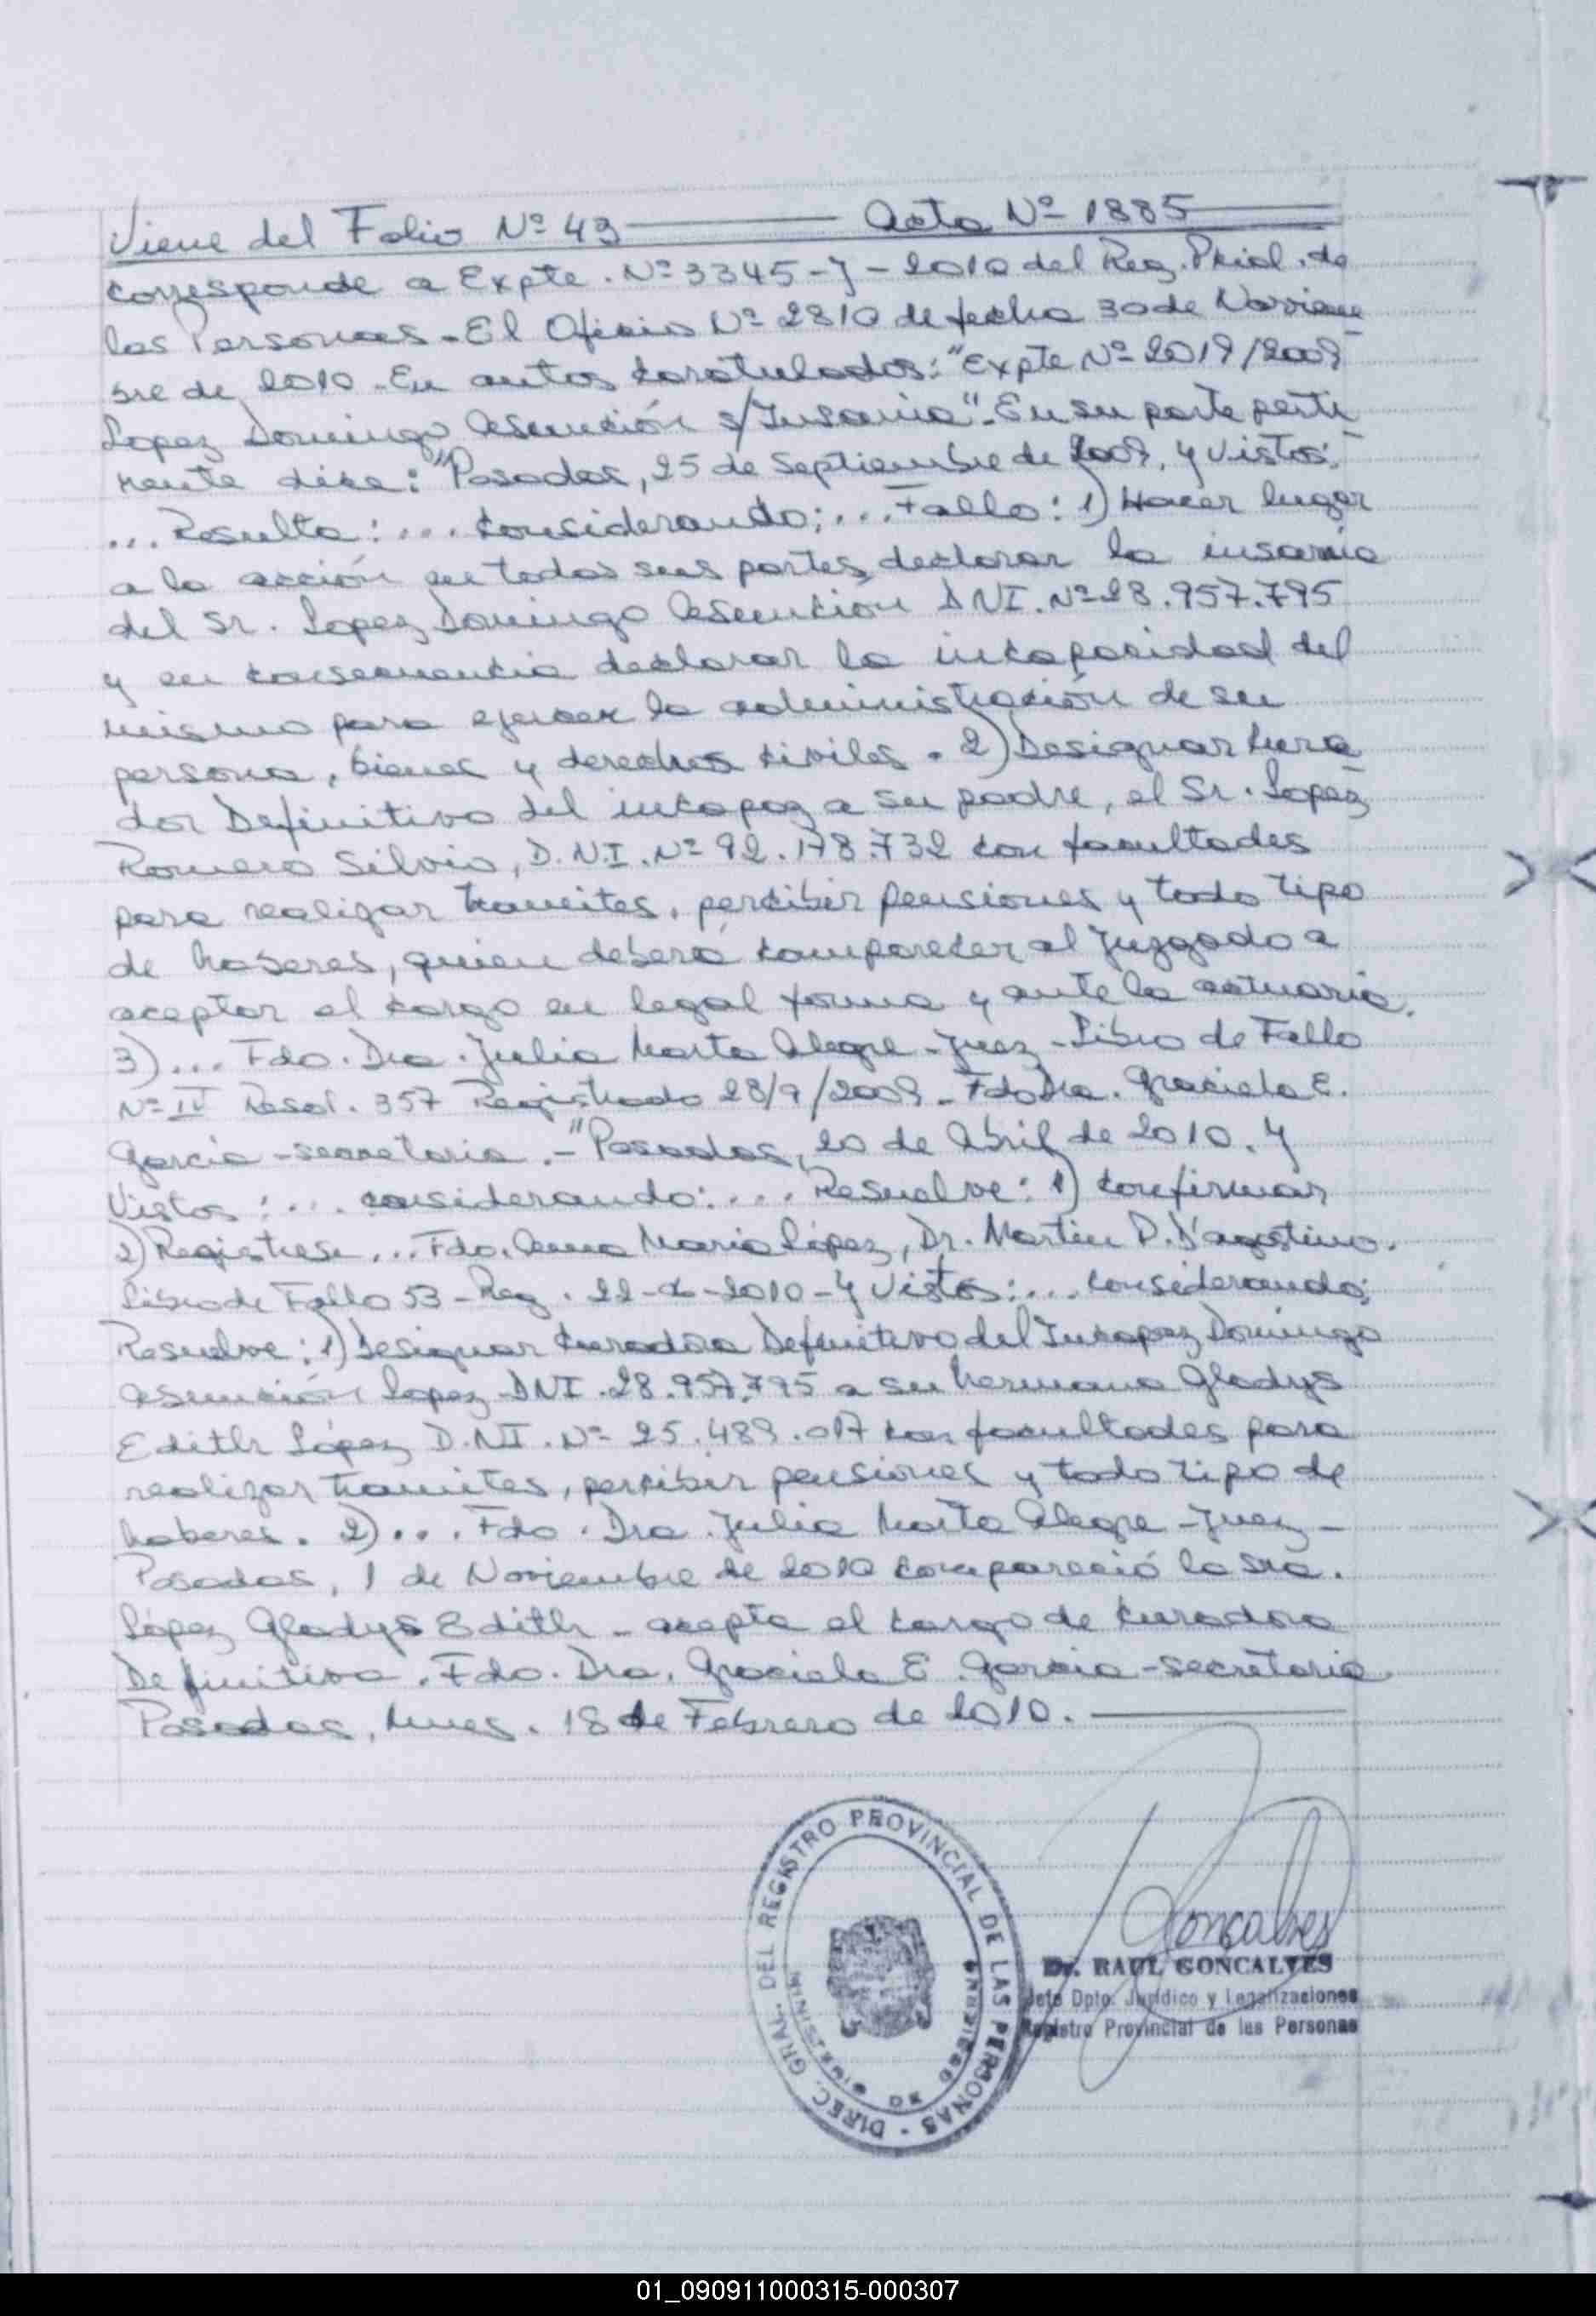 Viene del Folio Nº 43 Acta Nº 1885
corresponde a Expte. Nº 3345-J-2010 del Reg. Pcial. de
las Personas. El Oficio Nº 2810 de fecha 30 de Noviem
bre de 2010. En autos caratulados: "Expte Nº 2019/2009
Lopez Domingo Asunción s/Insania". En su parte perti
nente dice: "Posadas, 25 de Septiembre de 2009, y Vistos:
... Resulta: ... Considerando; ... Fallo: 1) Hacer lugar
a la acción en todas sus partes, declarar la insania
del Sr. Lopez Domingo Asunción DNI. Nº 28.957.795
y en consecuencia declarar la incapacidad del
mismo para ejercer la administración de su
persona, bienes y derechos civiles. 2) Designar Cura
dor Definitivo del incapaz a su padre, el Sr. Lopez
Romero Silvio, D.N.I. Nº 92.178.732 con facultades
para realizar tramites, percibir pensiones y todo tipo
de haberes, quien deberá comparecer al Juzgado a
aceptar el cargo en legal forma y ante la actuaria.
3) ... Fdo. Dra. Julia Marta Alegre - Juez - Libro de Fallo
Nº IV Resol. 357 Registrado 28/9/2009. Fdo Dra. Graciela E.
García - secretaria. - "Posadas, 20 de Abril de 2010. Y
Vistos: ... considerando: ... Resuelve: 1) Confirmar
2) Registrese ... Fdo. Anna Maria López, Dr. Martin P. D'agostino.
Libro de Fallo 53 - Reg. 22- -2010 - Y Vistos: ... Considerando;
Resuelve: 1) Designar Curadora Definitivo del Incapaz Domingo
Asunción Lopez DNI. 28.957.795 a su hermana Gladys
Edith López D.NI. Nº 25.489.017 con facultades para
realizar tramites, percibir pensiones y todo tipo de
haberes. 2) ... Fdo. Dra. Julia Marta Alegre - Juez -
Posadas, 1 de Noviembre de 2010 compareció la Sra.
López Gladys Edith - acepta el cargo de Curadora
Definitiva. Fdo. Dra. Graciela E. García - secretaria
Posadas, Mnes. 18 de Febrero de 2010.
DIREC. GRAL. DEL REGISTRO PROVINCIAL DE LAS PERSONAS
MINISTERIO DE GOBIERNO
Goncalves
Dr. RAUL GONCALVES
Jefe Dpto. Jurídico y Legalizaciones
Registro Provincial de las Personas
01_090911000315-000307